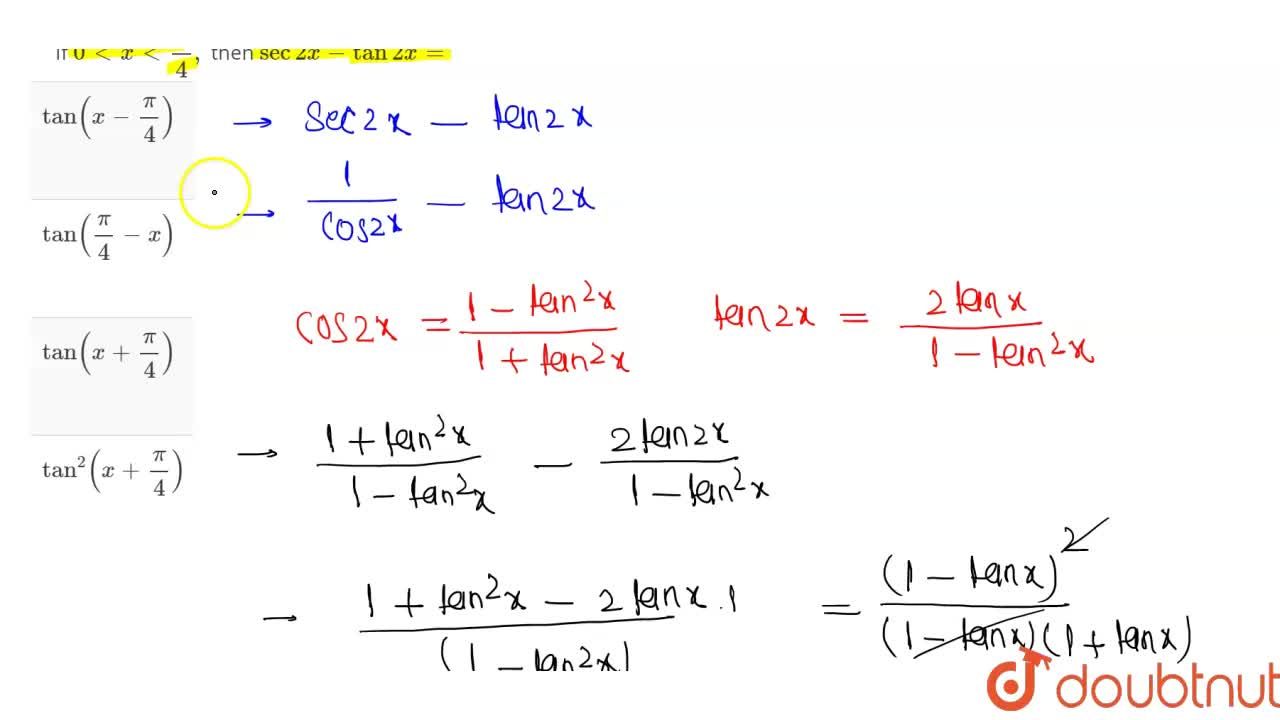 If 0 < x < π/4, then sec 2x − tan 2x =
tan(x − π/4)
tan(π/4 − x)
tan(x + π/4)
tan²(x + π/4)
→ Sec 2x − tan 2x
→ 1/cos2x − tan 2x
cos2x = (1 − tan²x)/(1 + tan²x)   tan 2x = (2 tan x)/(1 − tan²x)
→ (1 + tan²x)/(1 − tan²x) − (2 tan 2x)/(1 − tan²x)
→ (1 + tan²x − 2 tan x . 1)/(1 − tan2x) = (1 − tan x)²/((1 − tan x)(1 + tan x))
doubtnut